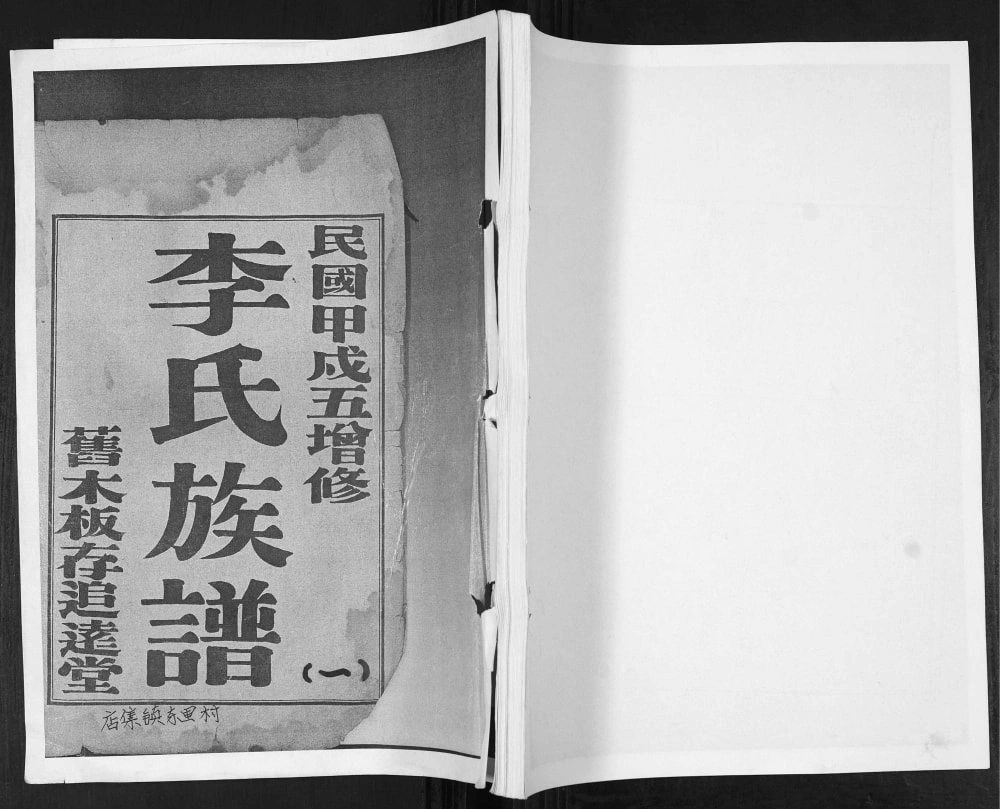 民國甲戍五增修
李氏族譜
(一)
舊木板存追逺堂
村里东镇集店